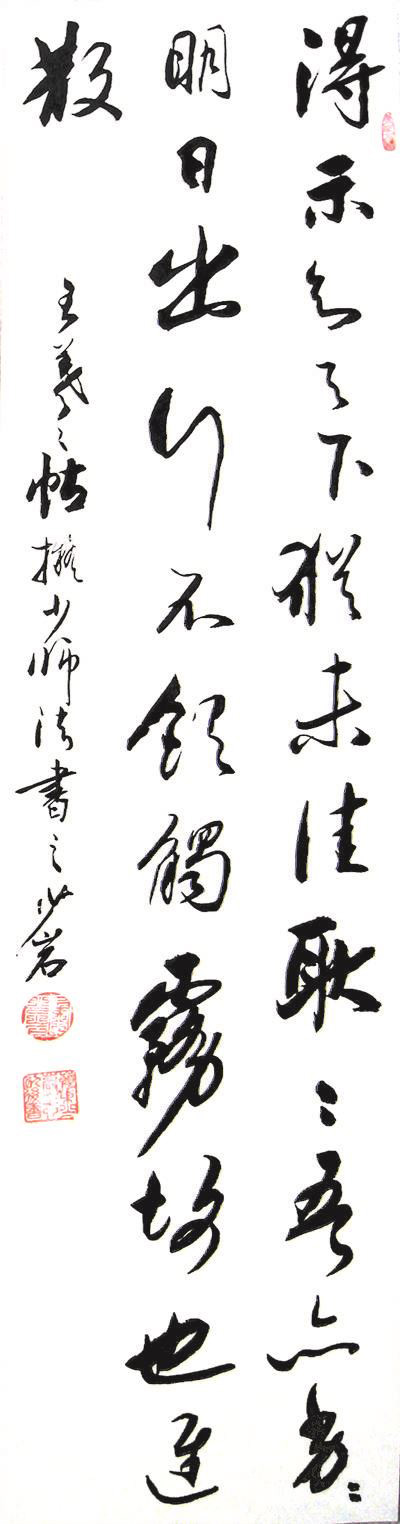 得示知足下猶未佳耿〻吾亦劣〻
明日出行不欲觸霧故也遲
散
王羲之帖擬少師法書之少岩